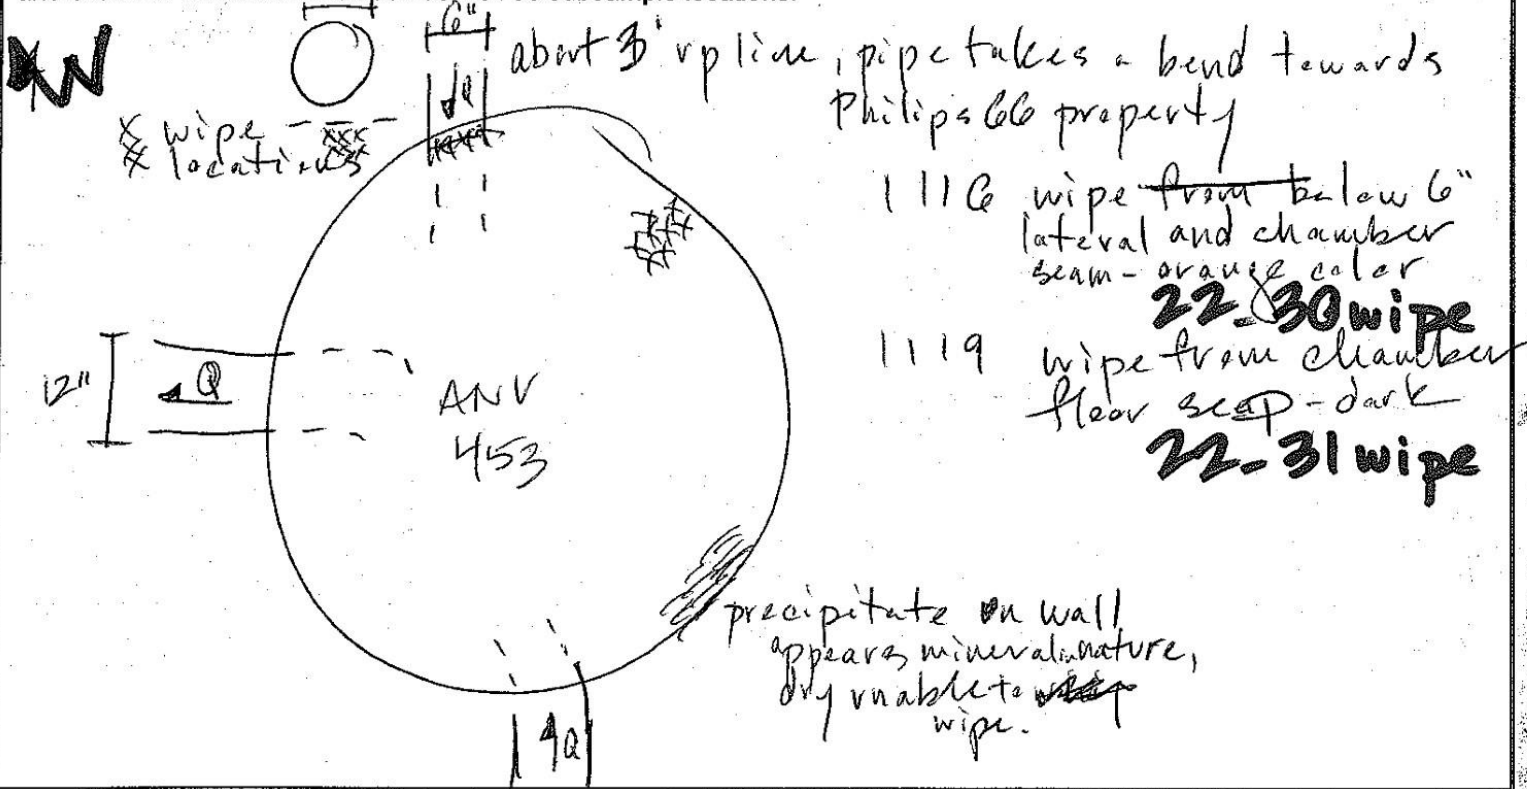 6"
about 3' up line, pipe takes a bend towards
Philips 66 property
Q
x wipe
x locations
1116 wipe from below 6"
lateral and chamber
seam - orange color
22-30 wipe
1119 wipe from chamber
floor seap - dark
22-31 wipe
12"
Q
ANV
453
precipitate on wall
appears mineral in nature,
dry unable to
wipe.
Q